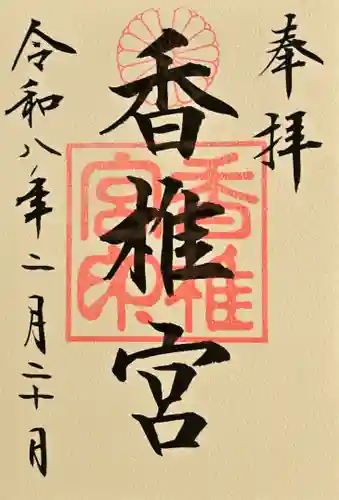 奉拝
香椎宮
令和八年二月二十日
香椎宮印